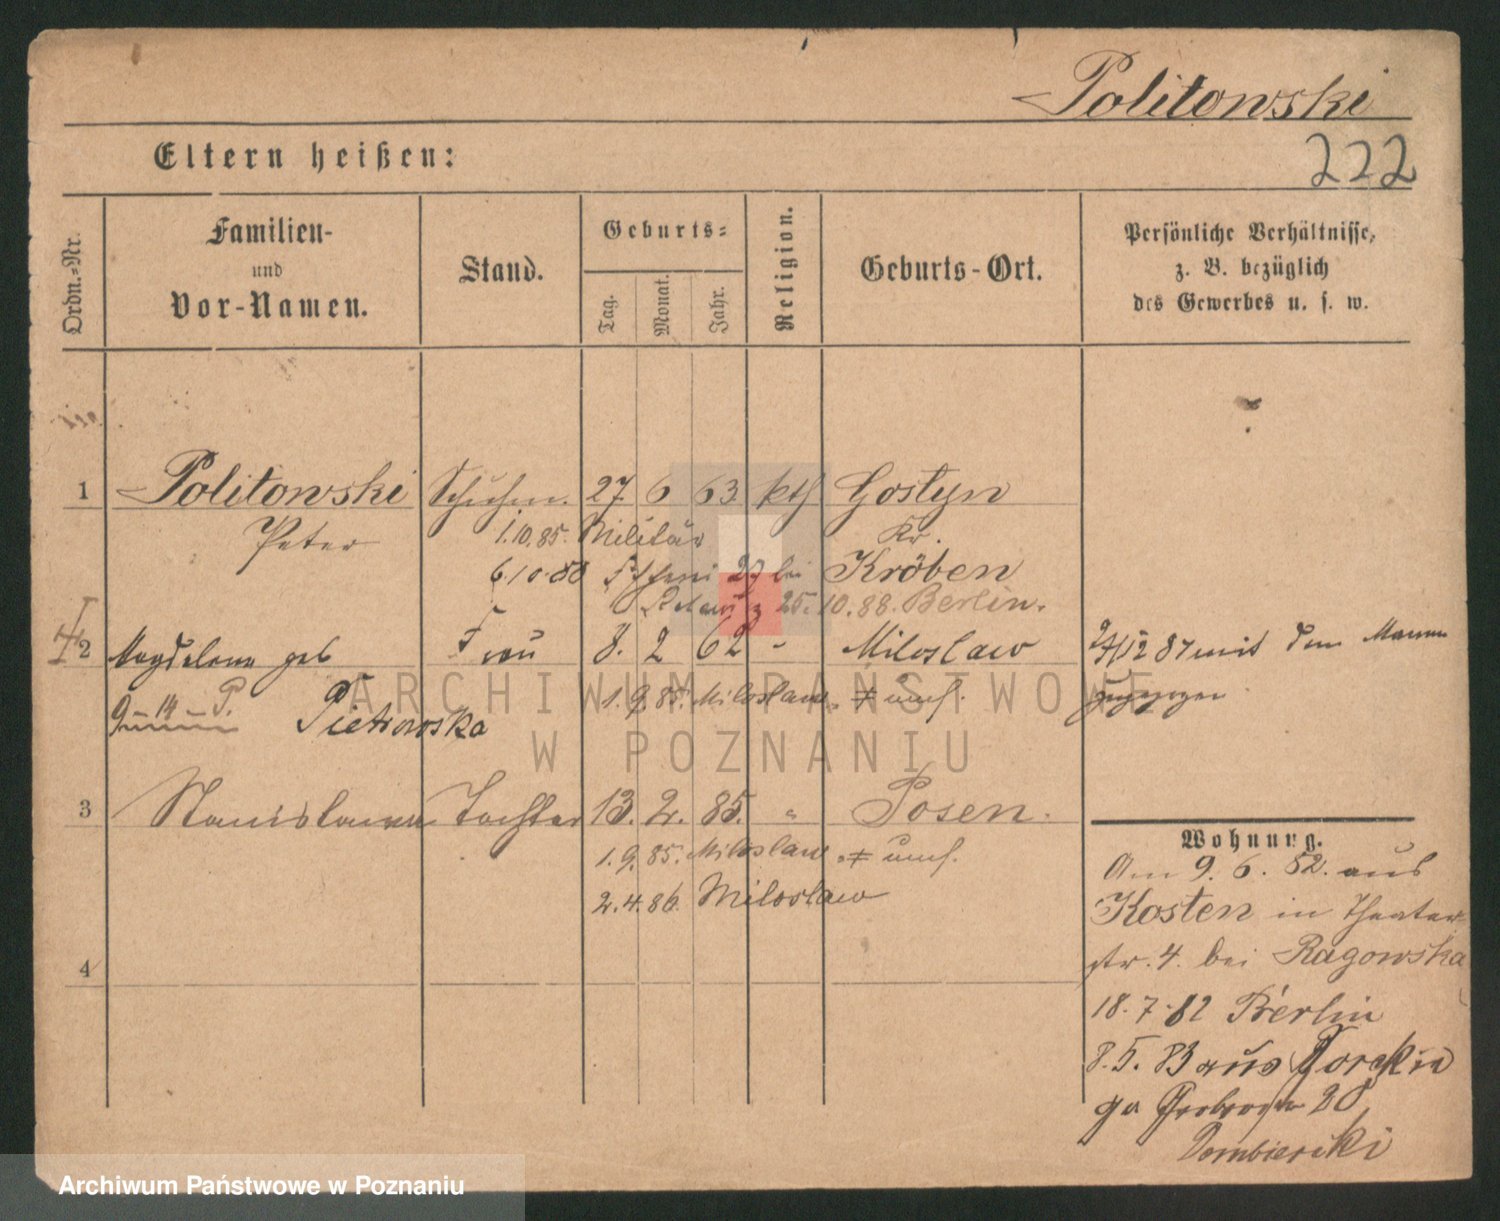 Politowski
222
Eltern heißen:
Ordn.-Nr.
Familien-
und
Vor-Namen.
Stand.
Geburts-
Tag.
Monat.
Jahr.
Religion.
Geburts-Ort.
Persönliche Verhältnisse,
z. B. bezüglich
des Gewerbes u. s. w.
1 Politowski Schuhm. 27. 6 63 kth Gostyn
Peter 1.10.85. Militär Kr.
6.10.88 27 bei Kröben
25.10.88. Berlin.
2 Magdalena geb Frau 8. 2 62 - Miloslaw 2/12 87 mit dem Manne
14 P. 1.9.85. Miloslaw. ≠ zugezogen
Pietrowska
3 Stanislawa Tochter 13. 2. 85. " Posen.
1.9.85. Miloslaw. ≠
2.4.86. Miloslaw
4
Wohnung.
Am 9. 6. 82. aus
Kosten in Theater-
str. 4. bei Ragowska
18.7.82 Berlin
8.5.83 aus
20
Dombierski
ARCHIWUM PAŃSTWOWE
W POZNANIU
Archiwum Państwowe w Poznaniu